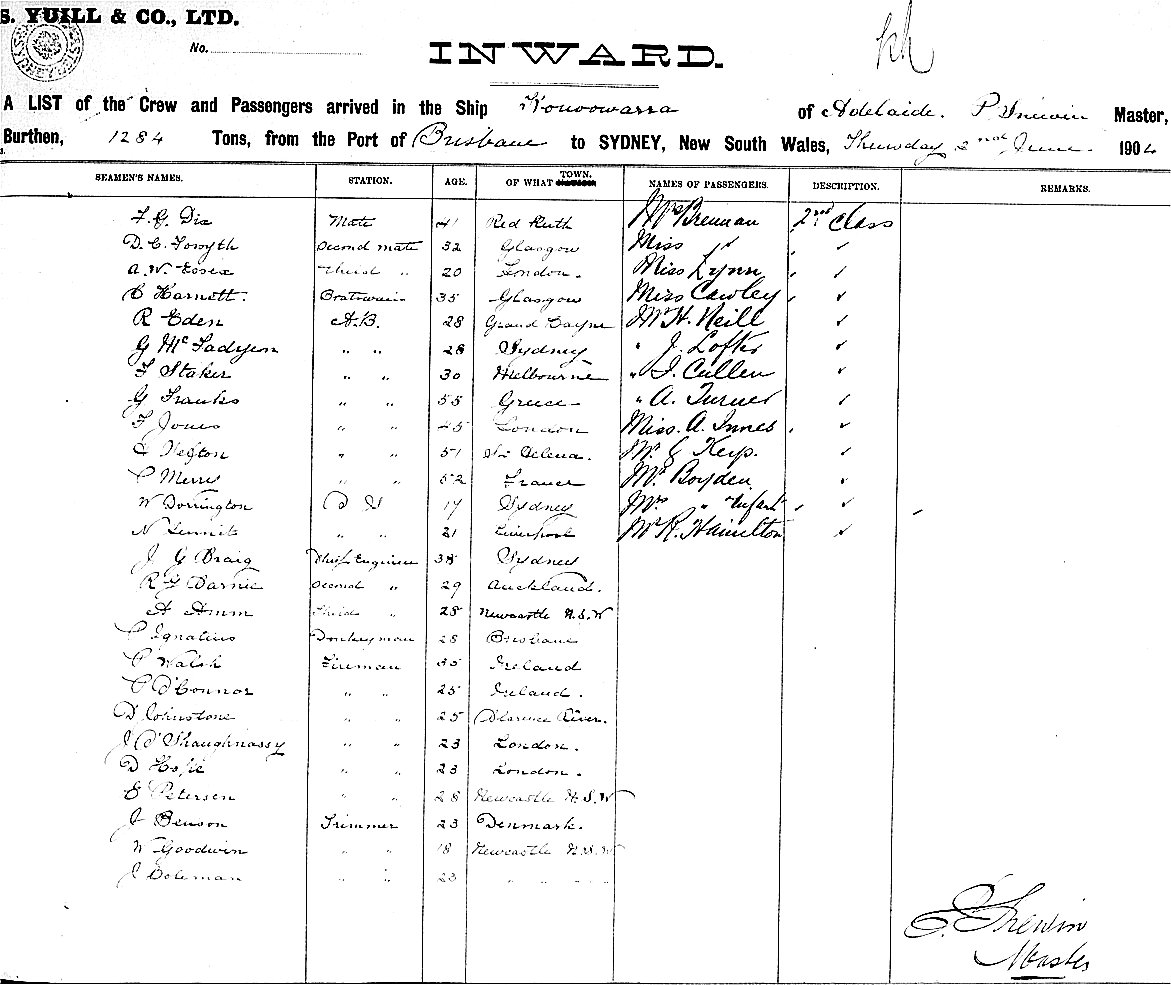 S. YUILL & CO., LTD.
No.
INWARD.
A LIST of the Crew and Passengers arrived in the Ship Kowoowarra of Adelaide. Master,
Burthen, 1284 Tons, from the Port of Brisbane to SYDNEY, New South Wales, Thursday 2nd June 1904
SEAMEN'S NAMES. STATION. AGE. OF WHAT TOWN. NAMES OF PASSENGERS. DESCRIPTION. REMARKS.
F. G. Dix Mate 41 Red Ruth Mrs Brennan 2nd Class
D. C. Forsyth Second mate 32 Glasgow Miss " ✓
A. W. Essex Third " 20 London. Miss Lynn ✓
C Harnett. Boatswain 35 Glasgow Miss Cawley ✓
R Eden A.B. 28 Grand Cayne Mr H. Neill ✓
G McFadyen " " 28 Sydney " J. Lofts ✓
F Staker " " 30 Melbourne " J. Cullen ✓
G Franks " " 55 Greece " A. Turner ✓
F Jones " " 45 London Miss. A. Innes ✓
Hefton " " 51 St Helena. Mr. Keys. ✓
C Merry " " 52 France Mr Boyden ✓
W Dorrington 17 Sydney Mrs " Infant ✓
N " " 21 Liverpool Mr R. Hamilton ✓
J G Craig Chief Engineer 38 Sydney
Barnie Second " 29 Auckland.
A Amm Third " 28 Newcastle N.S.W
P Ignatius Donkeyman 28 Brisbane
P Walsh Fireman 35 Ireland
P O'Connor " " 25 Ireland.
D Johnstone " " 25 Clarence River.
J O'Shaughnassy " " 23 London.
D Hope " " 23 London.
E Petersen " " 28 Newcastle N.S.W
J Benson Trimmer 23 Denmark.
W Goodwin " " 18 Newcastle N.S.W
J Coleman " " 23 " " " "
Master